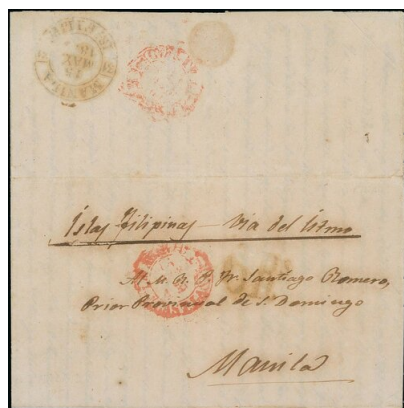 MANILA
Islas Filipinas - Via del Istmo
Al M. R. P. Fr. Santiago Romero,
Prior Provincial de S. Domingo
Manila